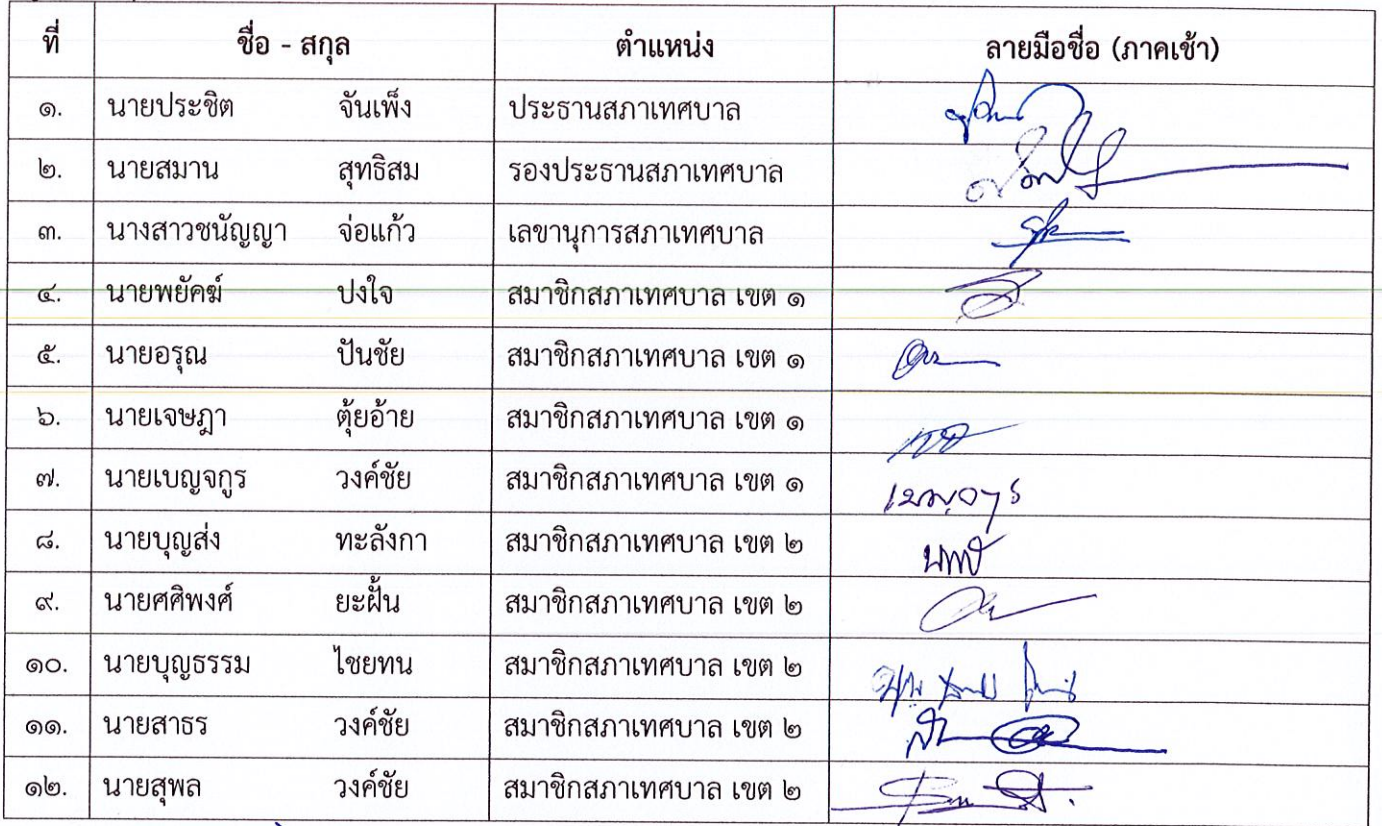 ที่ ชื่อ - สกุล ตำแหน่ง ลายมือชื่อ (ภาคเช้า)
๑. นายประชิต จันเพ็ง ประธานสภาเทศบาล
๒. นายสมาน สุทธิสม รองประธานสภาเทศบาล
๓. นางสาวชนัญญา จ่อแก้ว เลขานุการสภาเทศบาล
๔. นายพยัคฆ์ ปงใจ สมาชิกสภาเทศบาล เขต ๑
๕. นายอรุณ ปันชัย สมาชิกสภาเทศบาล เขต ๑
๖. นายเจษฎา ตุ้ยอ้าย สมาชิกสภาเทศบาล เขต ๑
๗. นายเบญจกูร วงค์ชัย สมาชิกสภาเทศบาล เขต ๑
๘. นายบุญส่ง ทะลังกา สมาชิกสภาเทศบาล เขต ๒
๙. นายศศิพงศ์ ยะฝั้น สมาชิกสภาเทศบาล เขต ๒
๑๐. นายบุญธรรม ไชยทน สมาชิกสภาเทศบาล เขต ๒
๑๑. นายสาธร วงค์ชัย สมาชิกสภาเทศบาล เขต ๒
๑๒. นายสุพล วงค์ชัย สมาชิกสภาเทศบาล เขต ๒